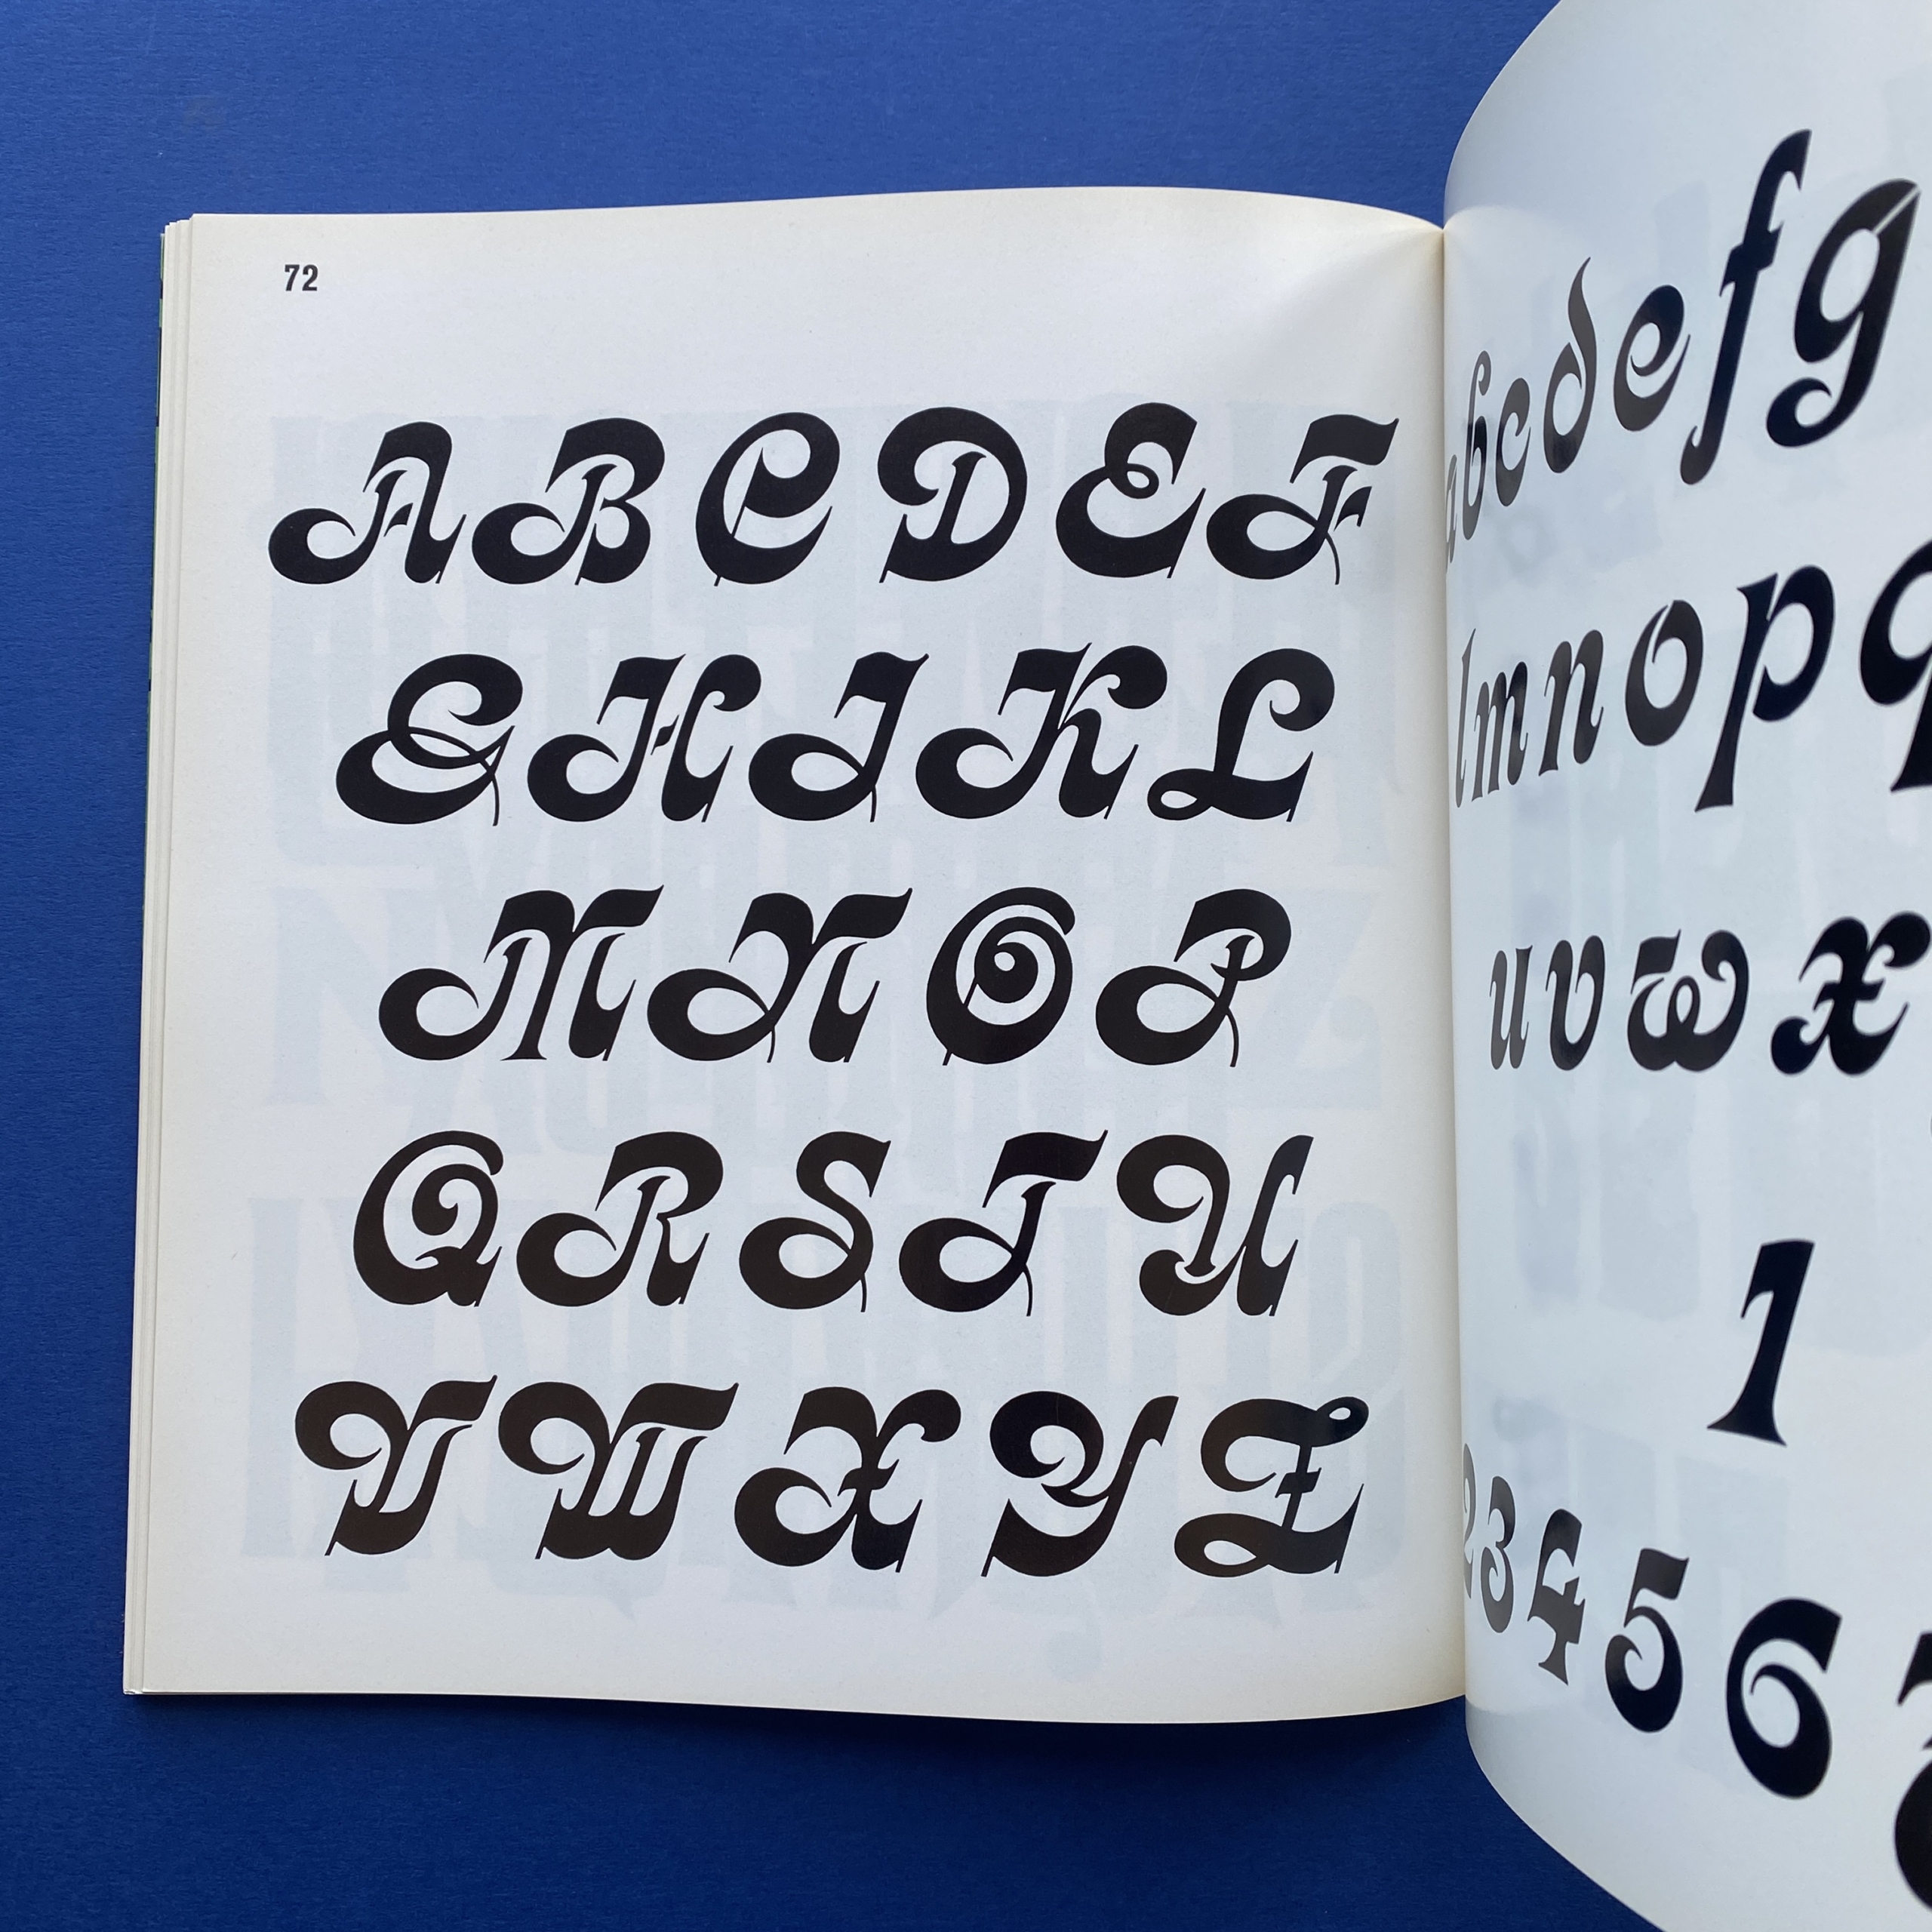 72
A B C D E F
G H I J K L
M N O P
Q R S T U
V W X Y Z
a b c d e f g
l m n o p q
u v w x
1
2 3 4 5 6